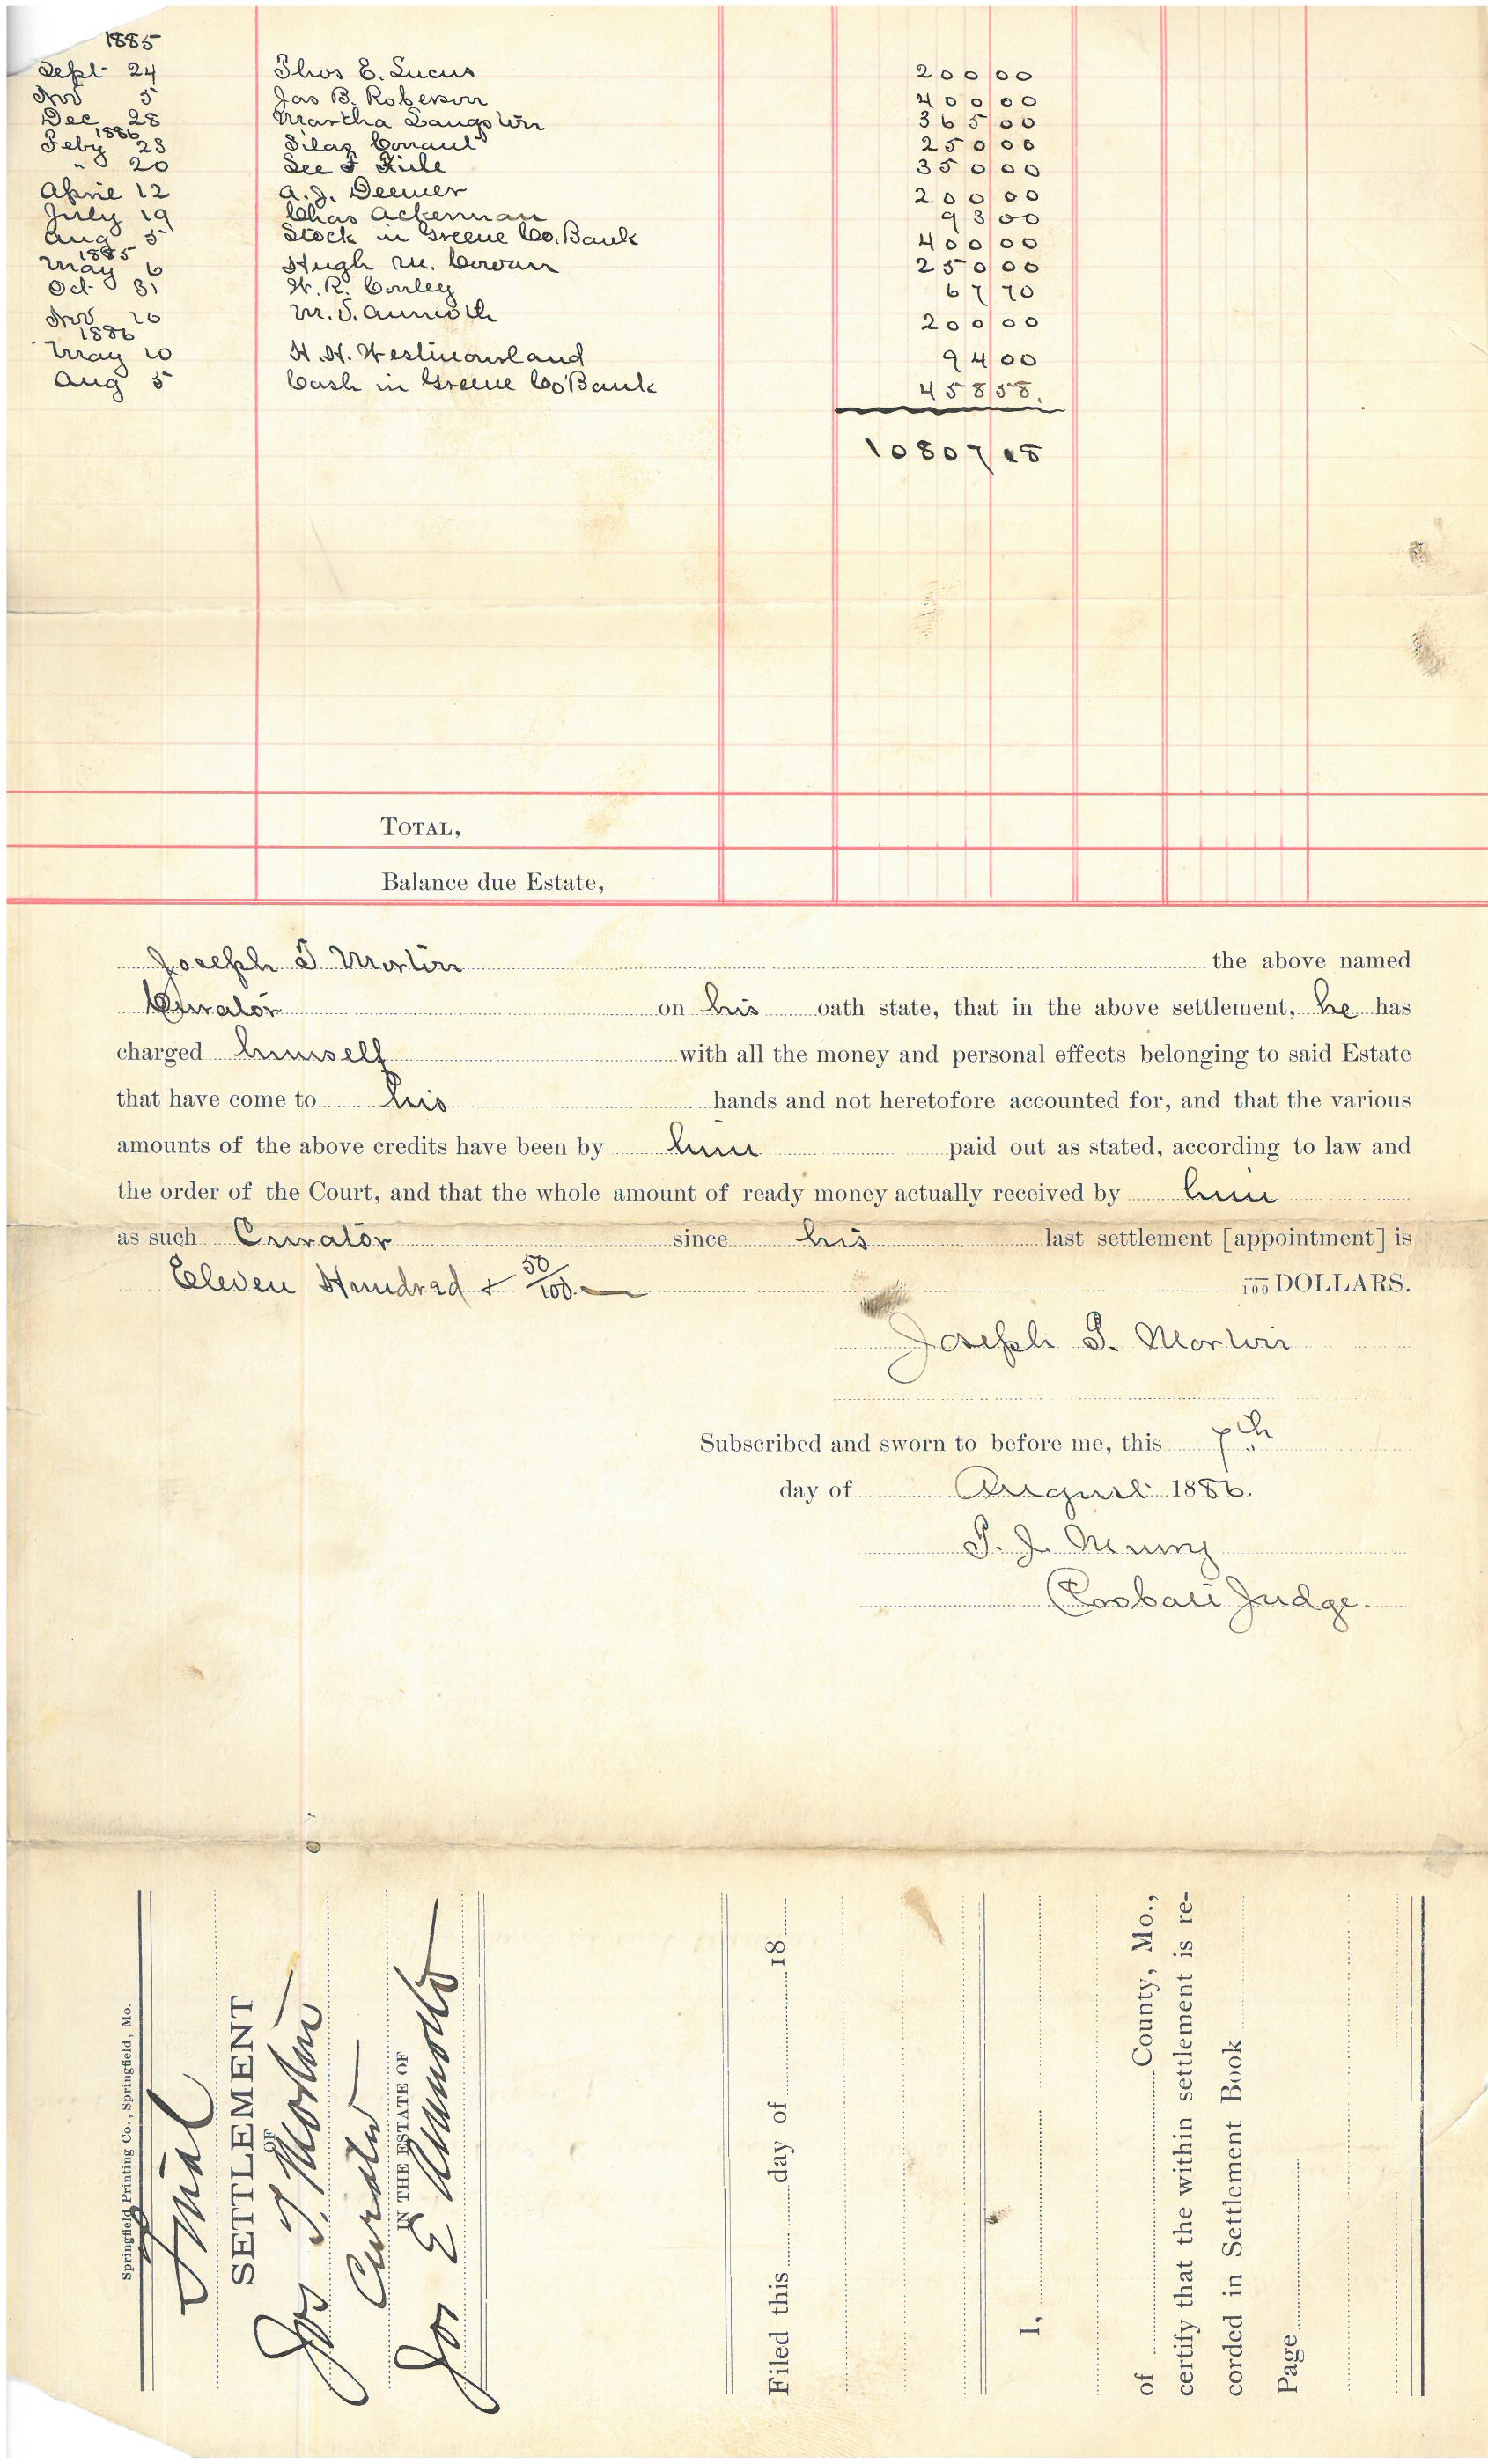 1885
Sept 24 Thos E. Lucus 200 00
Nov 5 Jas B. Roberson 400 00
Dec 28 Martha Langston 365 00
1886
Feby 23 Silas Conaut 250 00
" 20 See F Kile 350 00
April 12 A. J. Deemer 200 00
July 19 Chas Ackerman 93 00
Aug 5 Stock in Greene Co. Bank 400 00
1885
May 6 Hugh M. Cowan 250 00
Oct 31 W. R. Conley 67 70
Nov 10 M. S. Aumoth 200 00
1886
May 10 H. H. Westmoreland 94 00
Aug 5 Cash in Greene Co Bank 458 58.
10807 18
TOTAL,
Balance due Estate,
Joseph T Morton the above named
Curator on his oath state, that in the above settlement, he has
charged himself with all the money and personal effects belonging to said Estate
that have come to his hands and not heretofore accounted for, and that the various
amounts of the above credits have been by him paid out as stated, according to law and
the order of the Court, and that the whole amount of ready money actually received by him
as such Curator since his last settlement [appointment] is
Eleven Hundred + 50/100 — /100 DOLLARS.
Joseph T. Morton
Subscribed and sworn to before me, this 7th
day of August 1886.
T. J. Murry
Probate Judge.
Springfield Printing Co., Springfield, Mo.
Final
SETTLEMENT
OF
Jos T. Morton
Curator
IN THE ESTATE OF
Jos E Aumoth
Filed this day of 18
I,
of County, Mo.,
certify that the within settlement is re-
corded in Settlement Book
Page